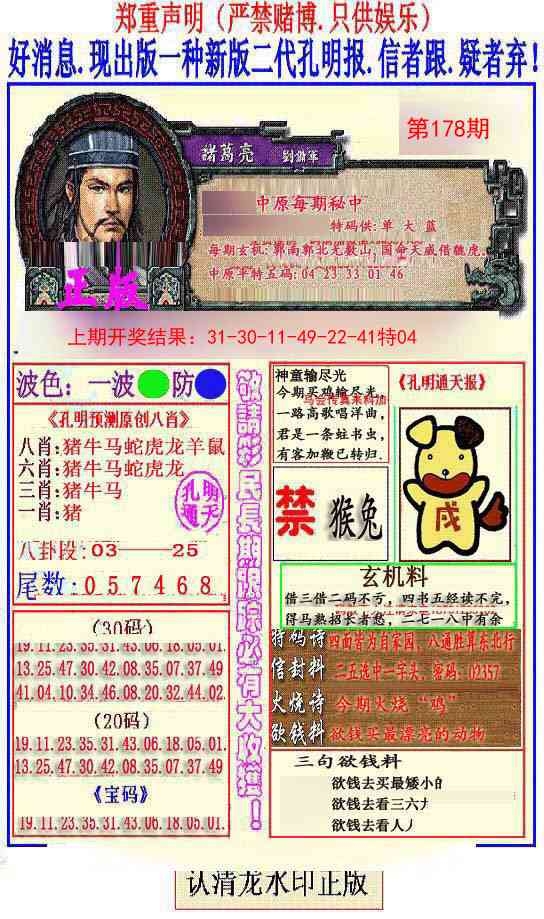 郑重声明（严禁赌博.只供娱乐）
好消息.现出版一种新版二代孔明报.信者跟.疑者弃!
第178期
諸葛亮 劉備軍
中原每期秘中
特码供:单 大 蓝
每期玄机:郭南郭北无数山,国命天威借魏虎.
中原平特五码:04 23 33 01 46
正版
上期开奖结果：31-30-11-49-22-41特04
波色：一波 防
《孔明预测原创八肖》
八肖:猪牛马蛇虎龙羊鼠
六肖:猪牛马蛇虎龙
三肖:猪牛马
一肖:猪
孔明
通天
八卦段:03——25
尾数:057468
(30码)
19.11.23.35.31.43.06.18.05.01.
13.25.47.30.42.08.35.07.37.49
41.04.10.34.46.08.20.32.44.02
(20码)
19.11.23.35.31.43.06.18.05.01
13.25.47.30.42.08.35.07.37.49
《宝码》
19.11.23.35.31.43.06.18.05.01.
敬請彩民長期跟踪必有大收獲！
神童输尽光
今期买鸡输尽光,
一路高歌唱洋曲,
君是一条蛀书虫,
有客加鞭已转归.
《孔明通天报》
戌
禁 猴兔
玄机料
借三借二码不亏，四书五经读不完,
得马熟招长者愁，二七一八中有余
特码诗 四面皆为自家园，八通胜算东北行
信封料 二五选中一字头，密码：02357
火烧诗 今期火烧“鸡”
欲钱料 欲钱买最漂亮的动物
三句欲钱料
欲钱去买最矮小的
欲钱去看三六
欲钱去看人
认清龙水印正版